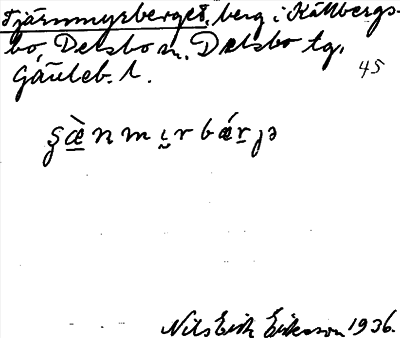 Tjärnmyrberget, berg i Källbergs-
bo, Delsbo sn, Delsbo tg,
Gävleb. l.
45
ʂæ̀nmɩrbǽrjə
Nils Erik Eriksson 1936.